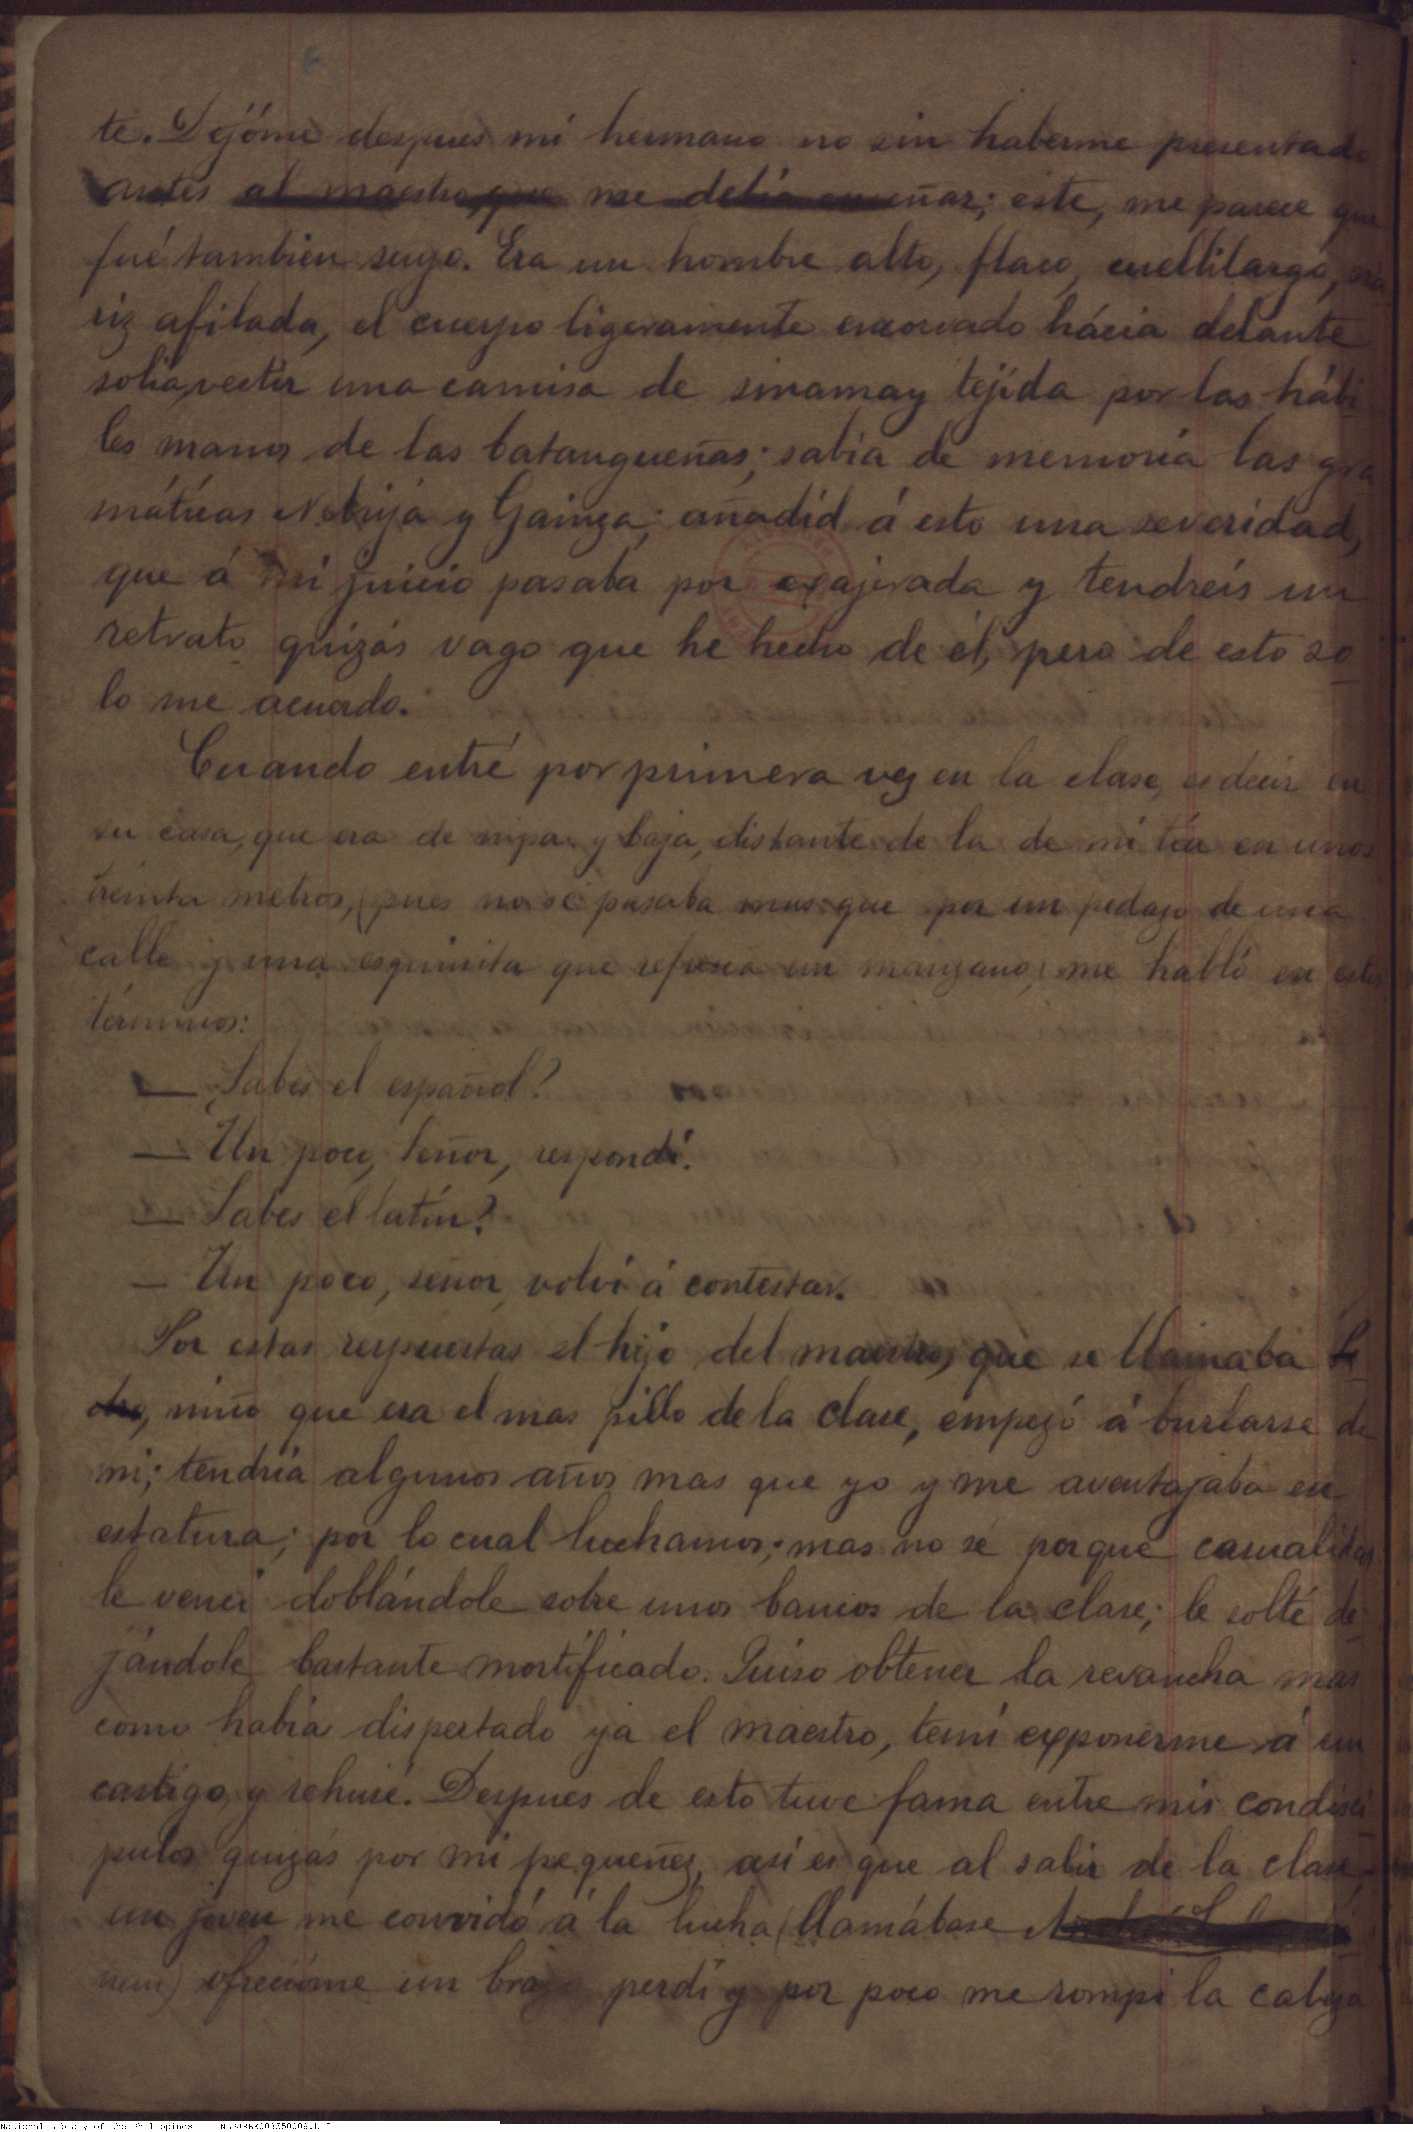 te. Dejóme despues mi hermano no sin haberme presentado
antes al maestro, que me debía enseñar; este, me parece que
fué tambien suyo. Era un hombre alto, flaco, cuellilargo, na
riz afilada, el cuerpo ligeramente encorvado hácia delante
solia vestir una camisa de sinamay tejida por las hábi
les manos de las batangueñas; sabia de memoria las gra
máticas Nebrija y Gainza; añadid á esto una severidad,
que á mi juicio pasaba por exajerada y tendreis un
retrato quizás vago que he hecho de él, pero de esto so
lo me acuerdo.
Cuando entré por primera vez en la clase, es decir en
su casa, que era de nipa y baja, distante de la de mi tia en unos
treinta metros, (pues no se pasaba mas que por un pedazo de una
calle y una esquinita que refresca un manzano) me habló en estos
términos:
— ¿Sabes el español?
— Un poco, Señor, respondí.
— Sabes el latín?
— Un poco, señor, volví á contestar.
Por estas respuestas el hijo del maestro, que se llamaba Pe
dro, niño que era el mas pillo de la clase, empezó á burlarse de
mi; tendría algunos años mas que yo y me aventajaba en
estatura; por lo cual luchamos; mas no sé porque casualidad
le vencí doblándole sobre unos bancos de la clase; le solté de
jándole bastante mortificado. Quiso obtener la revancha mas
como habia dispertado ya el maestro, temí exponerme á un
castigo y rehusé. Despues de esto tuve fama entre mis condisci
pulos quizás por mi pequeñez, así es que al salir de la clase
un joven me convidó á la lucha (llamábase
) ofrecióme un brazo perdí y por poco me rompí la cabeza